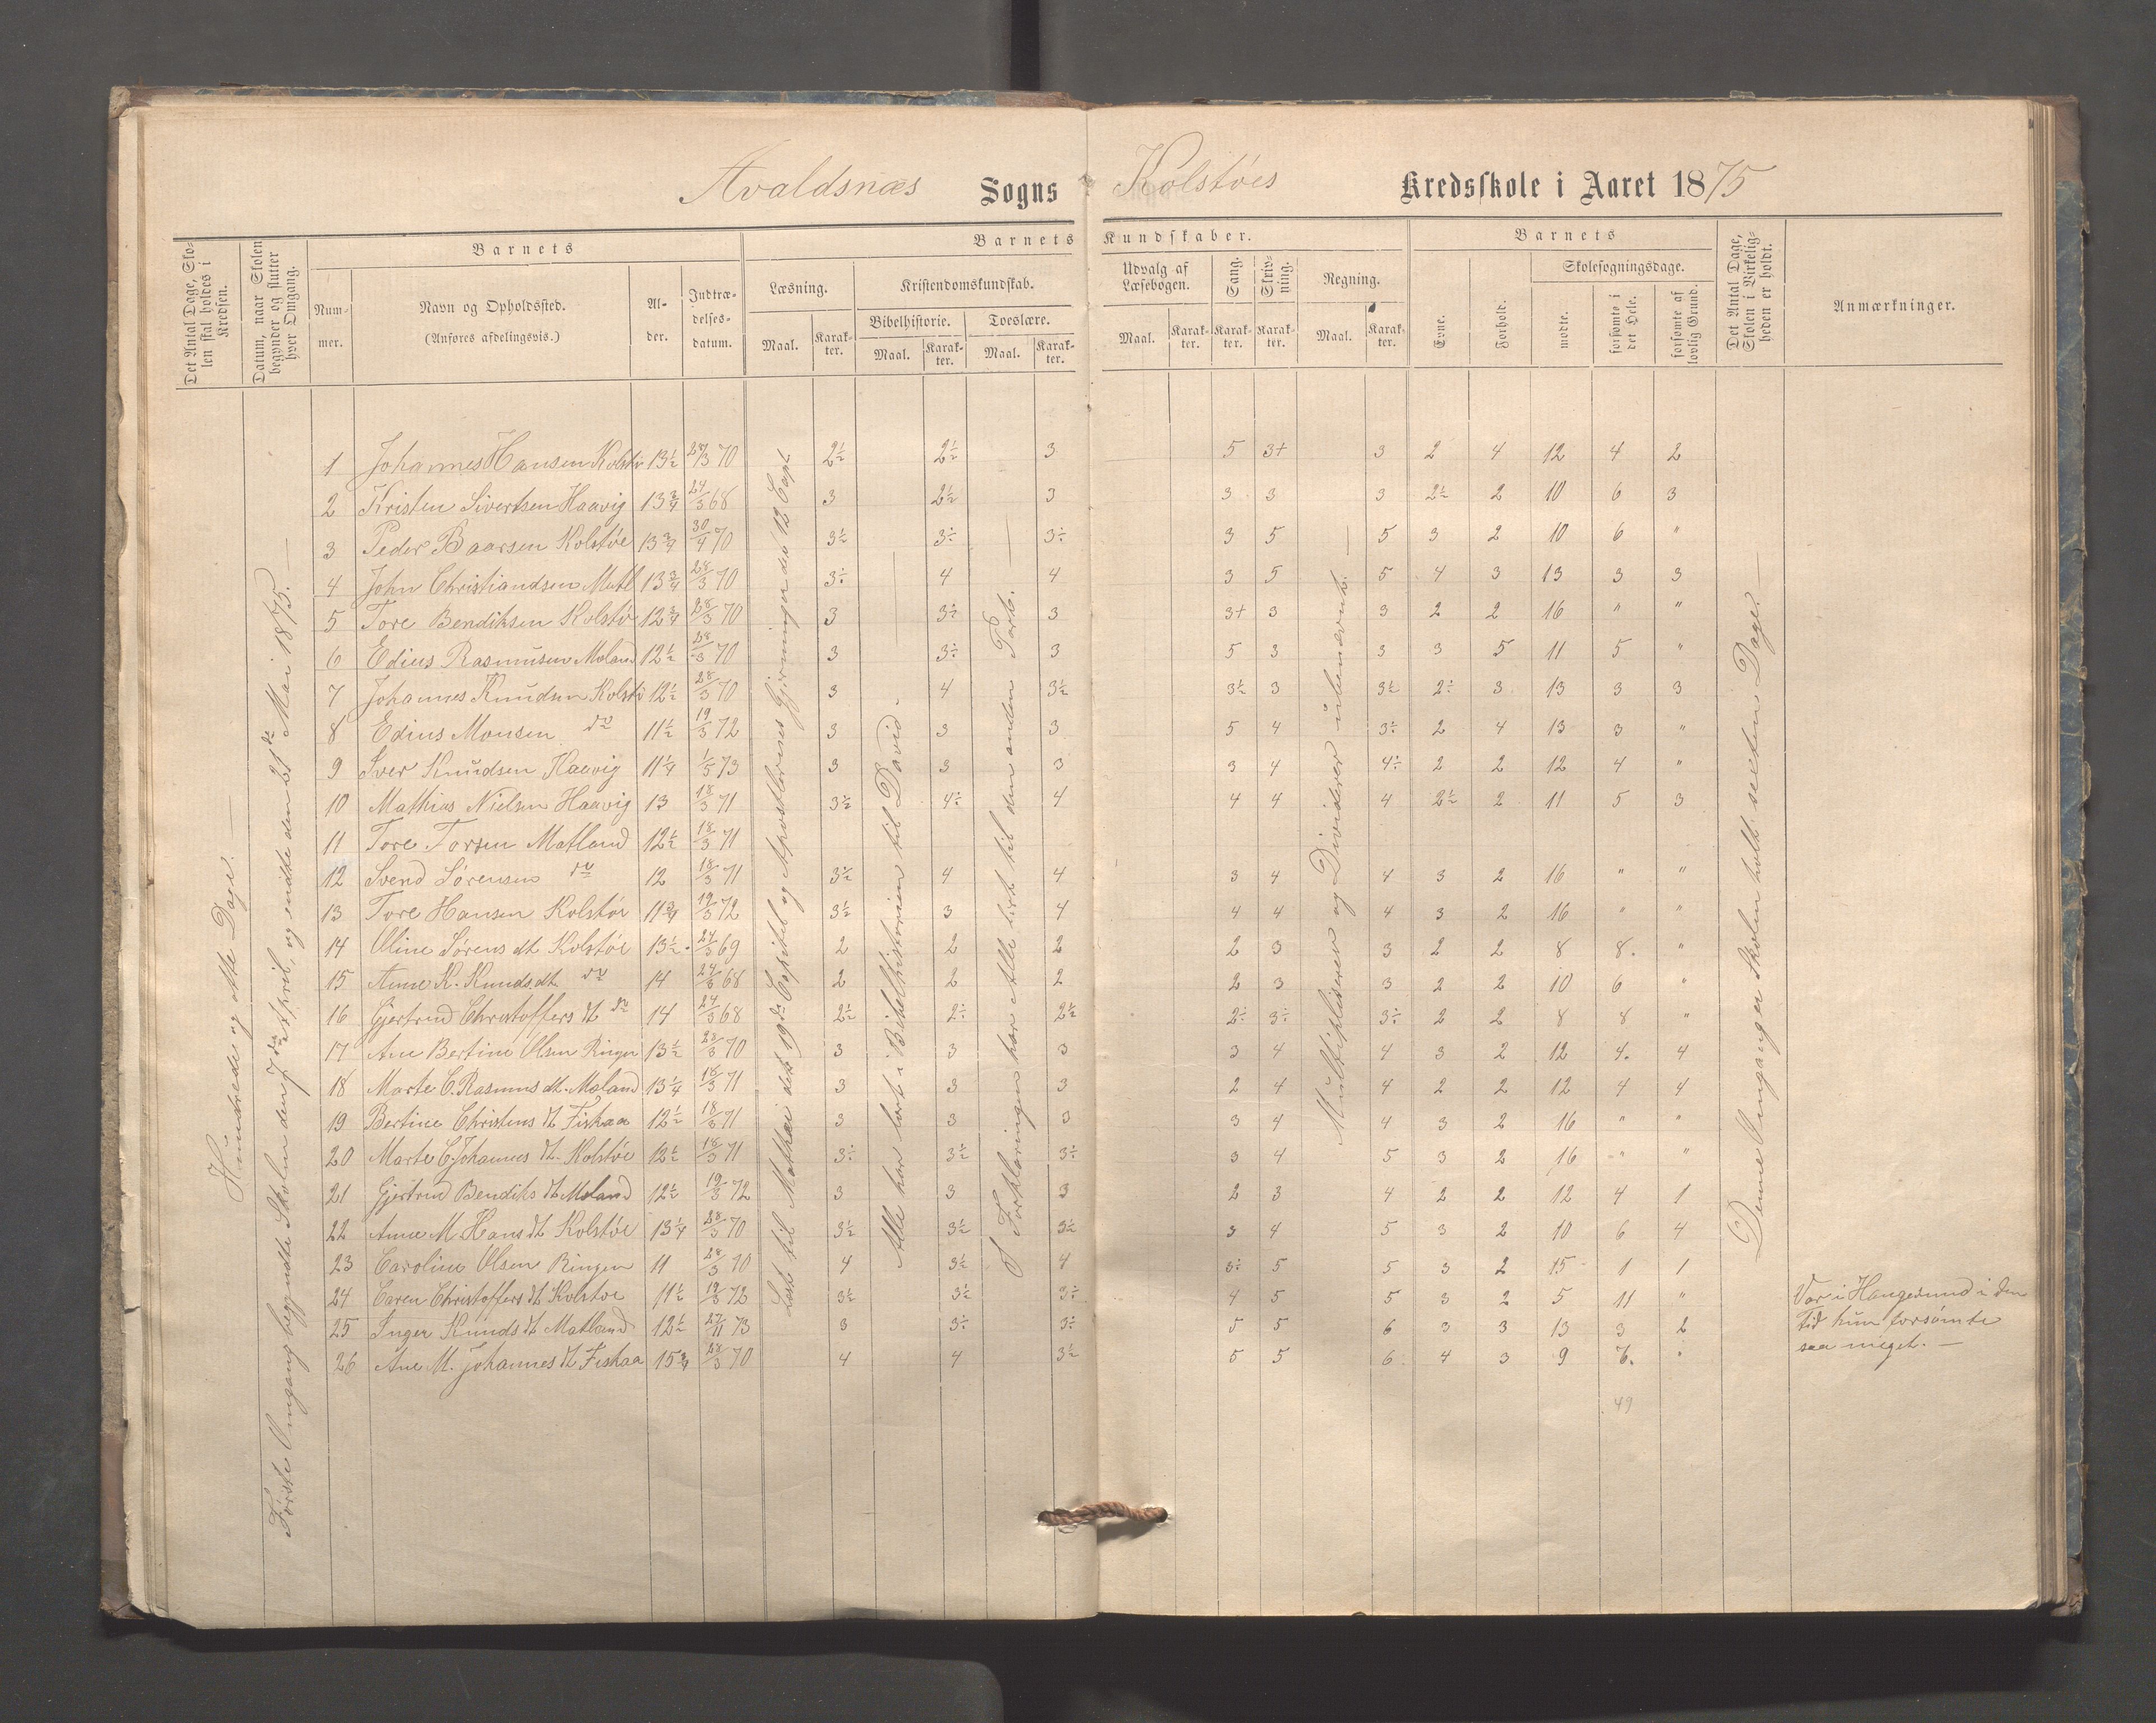 Avaldsnæs Sogns Kolstöes Kredsskole i Aaret 1875
Det Antal Dage, Skolen skal holdes i Kredsen.
Datum, naar Skolen begynder og slutter hver Omgang.
Barnets
Nummer.
Navn og Opholdssted.
(Anføres afdelingsvis.)
Alder.
Indtrædelsesdatum.
Barnets Kundskaber.
Læsning.
Maal.
Karakter.
Kristendomskundskab.
Bibelhistorie.
Maal.
Karakter.
Troeslære.
Maal.
Karakter.
Udvalg af Læsebogen.
Maal.
Karakter.
Sang.
Karakter.
Skrivning.
Karakter.
Regning.
Maal.
Karakter.
Barnets
Evne.
Forhold.
Skolesøgningsdage.
mødte.
forsømte i det Hele.
forsømte af lovlig Grund.
Det Antal Dage, Skolen i Virkeligheden er holdt.
Anmærkninger.
Hundrede og otte Dage. —
Første Omgang begyndte Skolen den 7de April, og endte den 21de Mai 1875. —
Læst til Matthæi det 19de Capitel og Apostlernes Gjerninger det 12 Capt
Alle har læst i Bibelhistorien til David. —
I Forklaringen har Alle læst til den anden Part. —
Multipliserer og Dividerer ubenævnte. —
Denne Omgang er Skolen holdt sexten Dage. —
1 Johannes Hansen Kolstö 13½ 28/3 70 2½ 2½ 3 5 3+ 3 2 4 12 4 2
2 Kristen Sivertsen Haavig 13¾ 24/3 68 3 2½ 3 3 3 3 2½ 2 10 6 3
3 Peder Baarsen Kolstöe 13¾ 30/4 70 3½ 3÷ 3÷ 3 5 5 3 2 10 6 "
4 John Christiandsen Matl 13¾ 28/3 70 3÷ 4 4 3 5 5 4 3 13 3 3
5 Tore Bendiksen Kolstö 12¾ 28/3 70 3 3÷ 3 3+ 3 3 2 2 16 " "
6 Edius Rasmusen Moland 12½ 28/3 70 3 3÷ 3 5 3 3 3 5 11 5 "
7 Johannes Knudsen Kolstö 12½ 28/3 70 3 4 3½ 3½ 3 3½ 2÷ 3 13 3 3
8 Edius Monsen do 11½ 19/3 72 3 3 3 5 4 3÷ 2 4 13 3 "
9 Iver Knudsen Haavig 11¼ 1/5 73 3 3 3 3 4 4÷ 2 2 12 4 "
10 Mathias Nielsen Haavig 13 18/3 71 3½ 4÷ 4 4 4 4 2½ 2 11 5 3
11 Tore Torsen Matland 12½ 18/3 71
12 Svend Sørensen do 12 18/3 71 3½ 4 4 3 4 4 3 2 16 " "
13 Tore Hansen Kolstöe 11¾ 19/3 72 3½ 3 4 4 4 4 3 2 16 " "
14 Oline Sørens dt Kolstöe 13½ 24/3 69 2 2 2 2 3 3 2 2 8 8. "
15 Anne K. Knuds dt do 14 24/3 68 2 2 2 2 3 3 2 2 10 6 "
16 Gjertrud Christoffers dt do 14 24/3 68 2½ 2÷ 2½ 2÷ 3÷ 3÷ 2 2 8 8 "
17 Ane Bertine Olsen Ringen 13½ 28/3 70 3 3 3 3 4 4 3 2 12 4. 4
18 Marte C. Rasmus dt. Moland 13¼ 18/3 71 3 3 3 2 4 4 2 2 12 4 4
19 Bertine Christens dt Fiskaa 12½ 18/3 71 3 3 3 3 4 4 3 2 16 " "
20 Marte C. Johannes dt. Kolstöe 12½ 18/3 71 3÷ 3½ 3÷ 3 4 5 3 2 16 " "
21 Gjertrud Bendiks dt Moland 12½ 19/3 72 3 3 3 2 3 4 2 2 12 4 1
22 Anne M Hans dt Kolstöe 13¼ 28/3 70 3½ 3½ 3½ 3 4 5 3 2 10 6 4
23 Caroline Olsen Ringen 11 28/3 70 4 3½ 4 3÷ 5 5 3 2 15 1 1
24 Caren Christoffers dt Kolstoe 11½ 19/3 72 3½ 3½ 3÷ 4 5 5 3 2 5 11 " Var i Haugesund i den
25 Inger Knuds dt Matland 12½ 27/11 73 3 3÷ 3÷ 5 5 6 3 3 13 3 2 Tid hun forsömte
26 Ane M. Johannes dt Fiskaa 15¾ 28/3 70 4 4 3½ 5 5 6 4 3 9 7. " saa meget. —
49